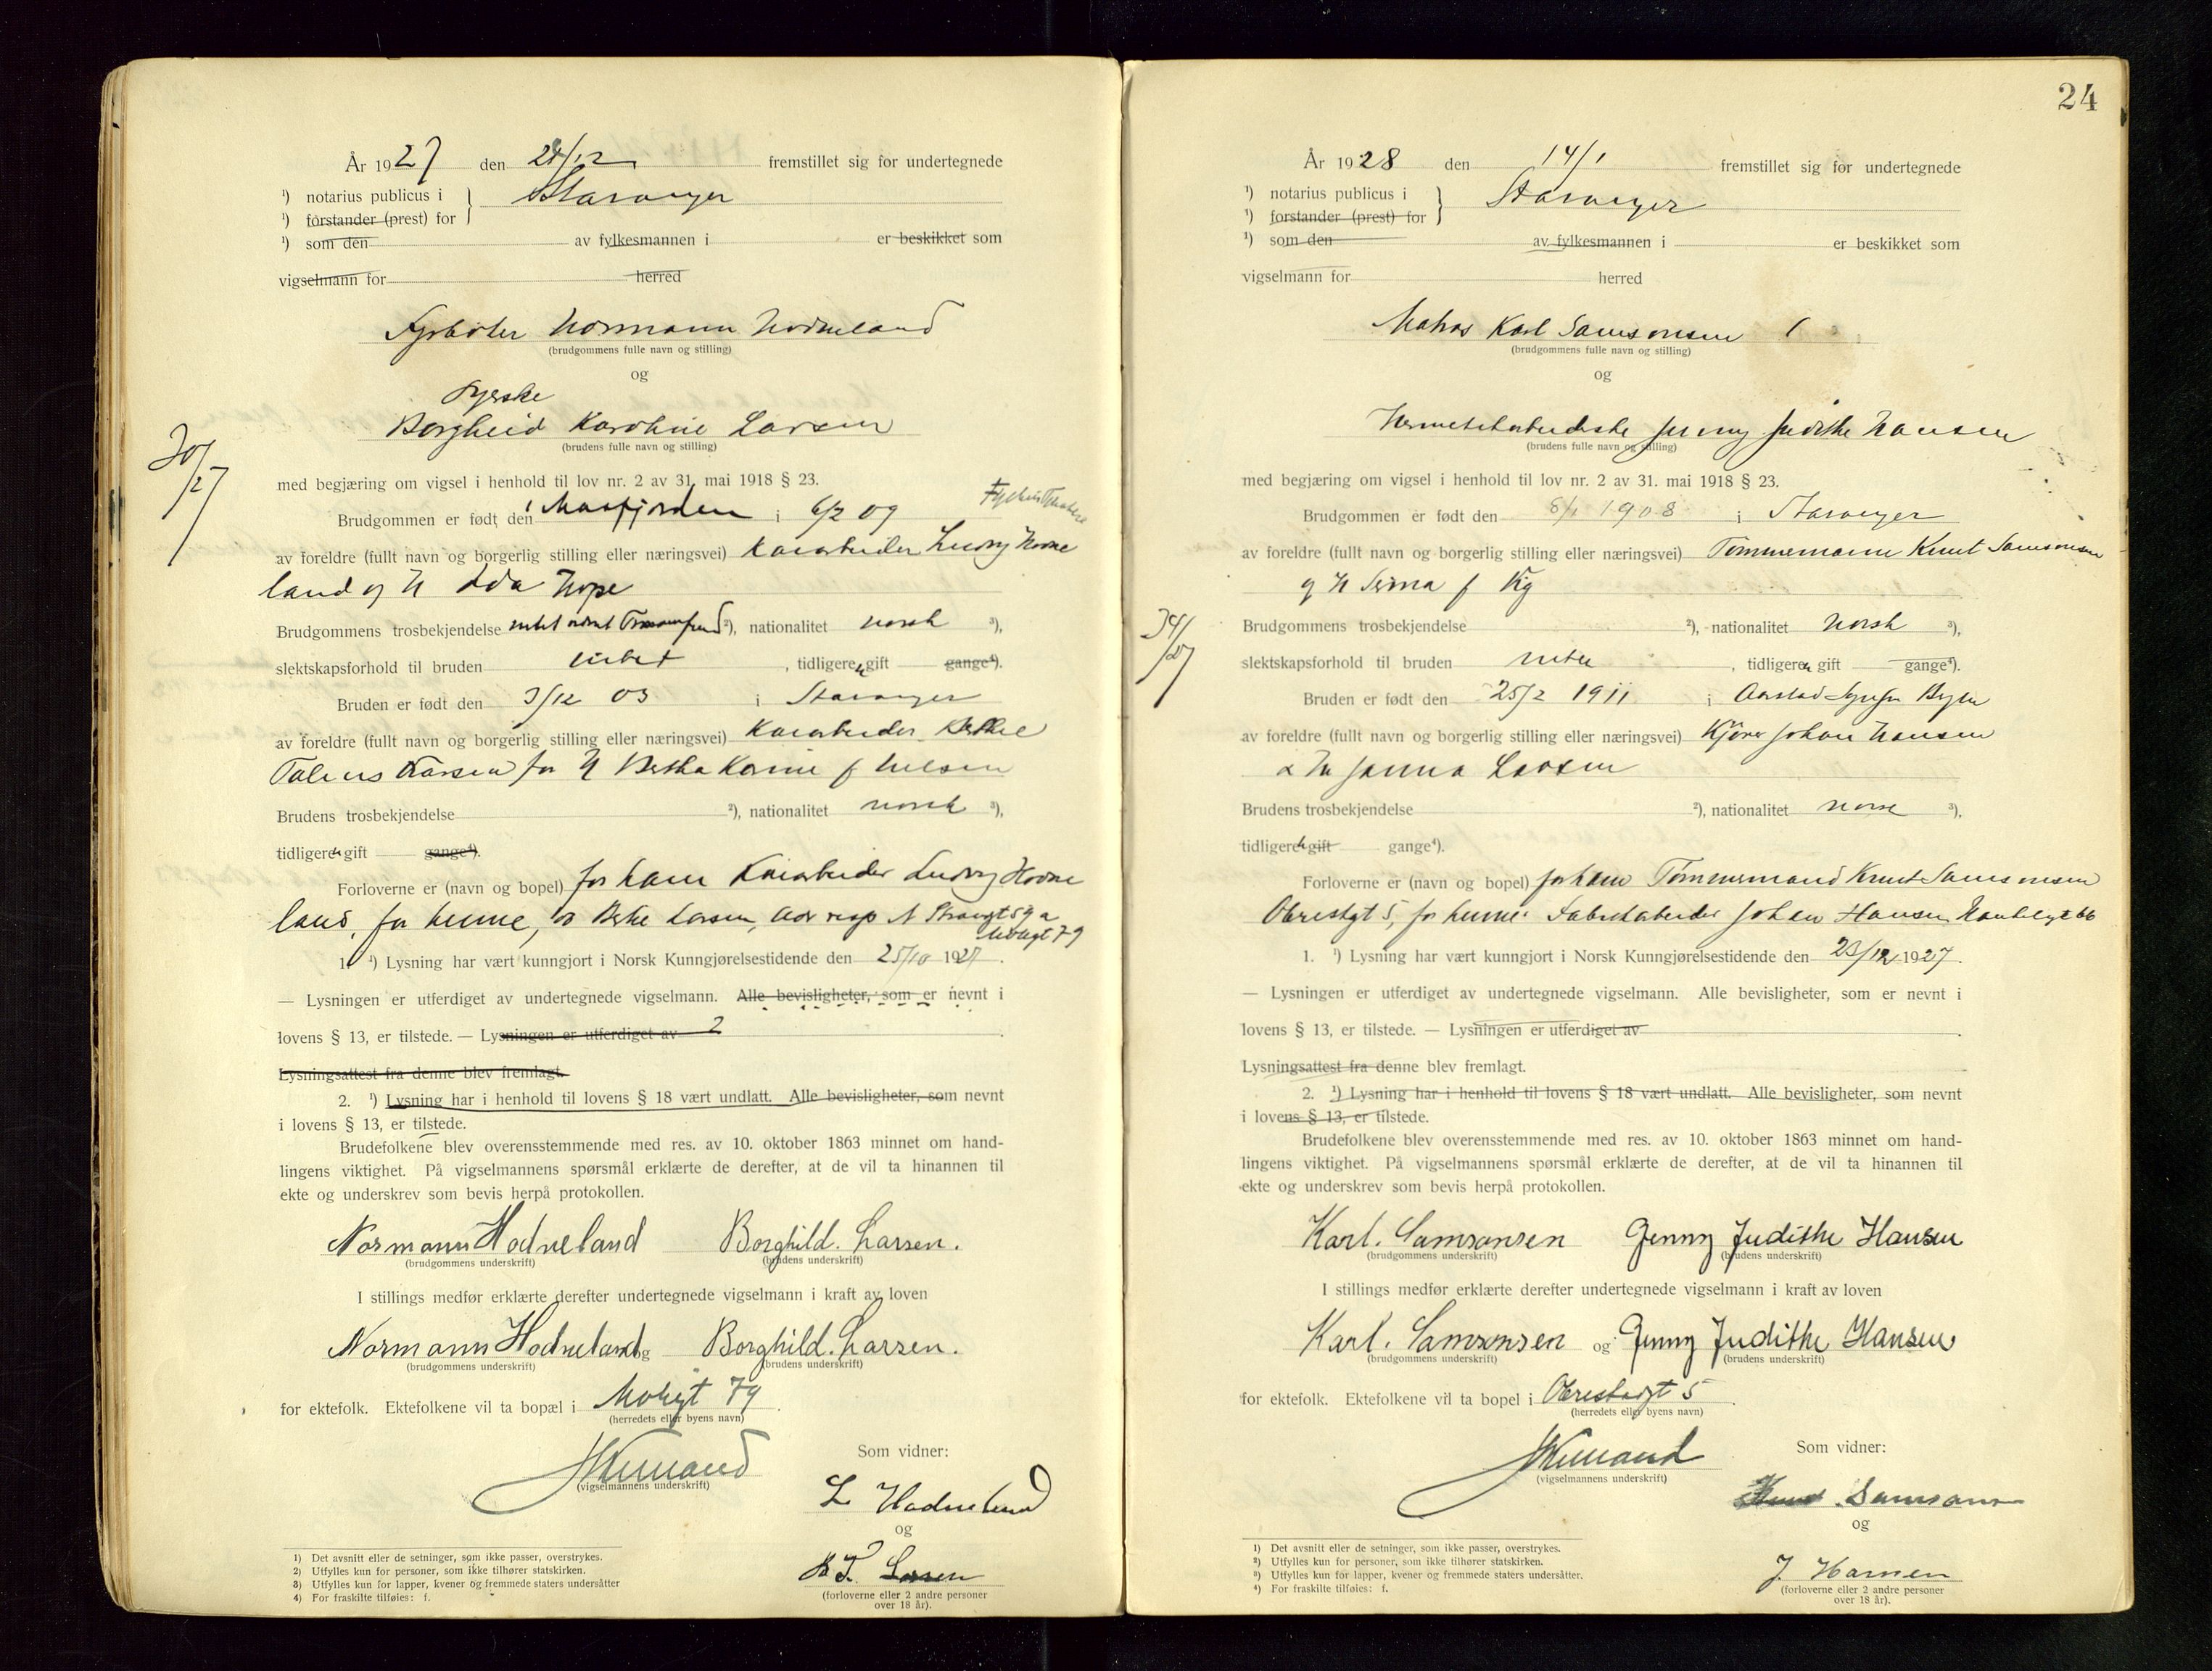 År 1927 den 24/12 fremstillet sig for undertegnede
¹) notarius publicus i Stavanger
¹) forstander (prest) for
¹) som den av fylkesmannen i er beskikket som
vigselmann for herred
Fyrbøter Normann Hodneland
(brudgommens fulle navn og stilling)
og
Syerske
Borghild Karoline Larsen
(brudens fulle navn og stilling)
30/27
med begjæring om vigsel i henhold til lov nr. 2 av 31. mai 1918 § 23.
Brudgommen er født den i Masfjorden i 6/2 09
av foreldre (fullt navn og borgerlig stilling eller næringsvei) Kaiarbeider Ludvig Hodne
land og H Ida Hope
Brudgommens trosbekjendelse ²), nationalitet norsk ³),
slektskapsforhold til bruden intet , tidligere gift gange⁴).
Bruden er født den 3/12 03 i Stavanger
av foreldre (fullt navn og borgerlig stilling eller næringsvei) Kaiarbeider
Larsen H Bertha Karine f Nilsen
Brudens trosbekjendelse ²), nationalitet norsk ³),
tidligere gift gange⁴).
Forloverne er (navn og bopel) for ham Kaiarbeider Ludvig Hodne
land, for henne, Larsen, N Strandgt 59 a
79
1. ¹) Lysning har vært kunngjort i Norsk Kunngjørelsestidende den 25/10 1927.
— Lysningen er utferdiget av undertegnede vigselmann. Alle bevisligheter, som er nevnt i
lovens § 13, er tilstede. — Lysningen er utferdiget av 2
Lysningsattest fra denne blev fremlagt.
2. ¹) Lysning har i henhold til lovens § 18 vært undlatt. Alle bevisligheter, som nevnt
i lovens § 13, er tilstede.
Brudefolkene blev overensstemmende med res. av 10. oktober 1863 minnet om hand-
lingens viktighet. På vigselmannens spørsmål erklærte de derefter, at de vil ta hinannen til
ekte og underskrev som bevis herpå protokollen.
Normann Hodneland Borghild. Larsen.
(brudgommens underskrift) (brudens underskrift)
I stillings medfør erklærte derefter undertegnede vigselmann i kraft av loven
Normann Hodneland og Borghild. Larsen.
(brudgommens underskrift) (brudens underskrift)
for ektefolk. Ektefolkene vil ta bopæl i 79
(herredets eller byens navn)
(vigselmannens underskrift)
Som vidner:
L Hodneland
og
B T. Larsen
(forloverne eller 2 andre personer
over 18 år).
1) Det avsnitt eller de setninger, som ikke passer, overstrykes.
2) Utfylles kun for personer, som ikke tilhører statskirken.
3) Utfylles kun for lapper, kvener og fremmede staters undersåtter
4) For fraskilte tilføies: f.
24
År 1928 den 14/1 fremstillet sig for undertegnede
¹) notarius publicus i Stavanger
¹) forstander (prest) for
¹) som den av fylkesmannen i er beskikket som
vigselmann for herred
Matros Karl Samsonsen
(brudgommens fulle navn og stilling)
og
Hermetikarbeiderske Jenny Judithe Hansen
(brudens fulle navn og stilling)
med begjæring om vigsel i henhold til lov nr. 2 av 31. mai 1918 § 23.
Brudgommen er født den 8/1 1908 i Stavanger
av foreldre (fullt navn og borgerlig stilling eller næringsvei) Tømmermann Knut Samsonsen
og H Serina f Vig
34/27
Brudgommens trosbekjendelse ²), nationalitet Norsk ³),
slektskapsforhold til bruden intet , tidligere gift gange⁴).
Bruden er født den 25/2 1911 i
av foreldre (fullt navn og borgerlig stilling eller næringsvei) Kjører Johan Hansen
Janna Larsen
Brudens trosbekjendelse ²), nationalitet norsk ³),
tidligere gift gange⁴).
Forloverne er (navn og bopel) for ham Tømmermand Knut Samsonsen
5, for henne: Fabrikarbeider Johan Hansen
1. ¹) Lysning har vært kunngjort i Norsk Kunngjørelsestidende den 23/12 1927.
— Lysningen er utferdiget av undertegnede vigselmann. Alle bevisligheter, som er nevnt i
lovens § 13, er tilstede. — Lysningen er utferdiget av
Lysningsattest fra denne blev fremlagt.
2. ¹) Lysning har i henhold til lovens § 18 vært undlatt. Alle bevisligheter, som nevnt
i lovens § 13, er tilstede.
Brudefolkene blev overensstemmende med res. av 10. oktober 1863 minnet om hand-
lingens viktighet. På vigselmannens spørsmål erklærte de derefter, at de vil ta hinannen til
ekte og underskrev som bevis herpå protokollen.
Karl. Samsonsen Jenny Judithe Hansen
(brudgommens underskrift) (brudens underskrift)
I stillings medfør erklærte derefter undertegnede vigselmann i kraft av loven
Karl. Samsonsen og Jenny Judithe Hansen
(brudgommens underskrift) (brudens underskrift)
for ektefolk. Ektefolkene vil ta bopel i 5
(herredets eller byens navn)
(vigselmannens underskrift)
Som vidner:
Knud Samsons
og
J. Hansen
(forloverne eller 2 andre personer
over 18 år).
1) Det avsnitt eller de setninger, som ikke passer, overstrykes.
²) Utfylles kun for personer, som ikke tilhører statskirken.
³) Utfylles kun for lapper, kvener og fremmede staters undersåtter.
⁴) For fraskilte tilføies: f.